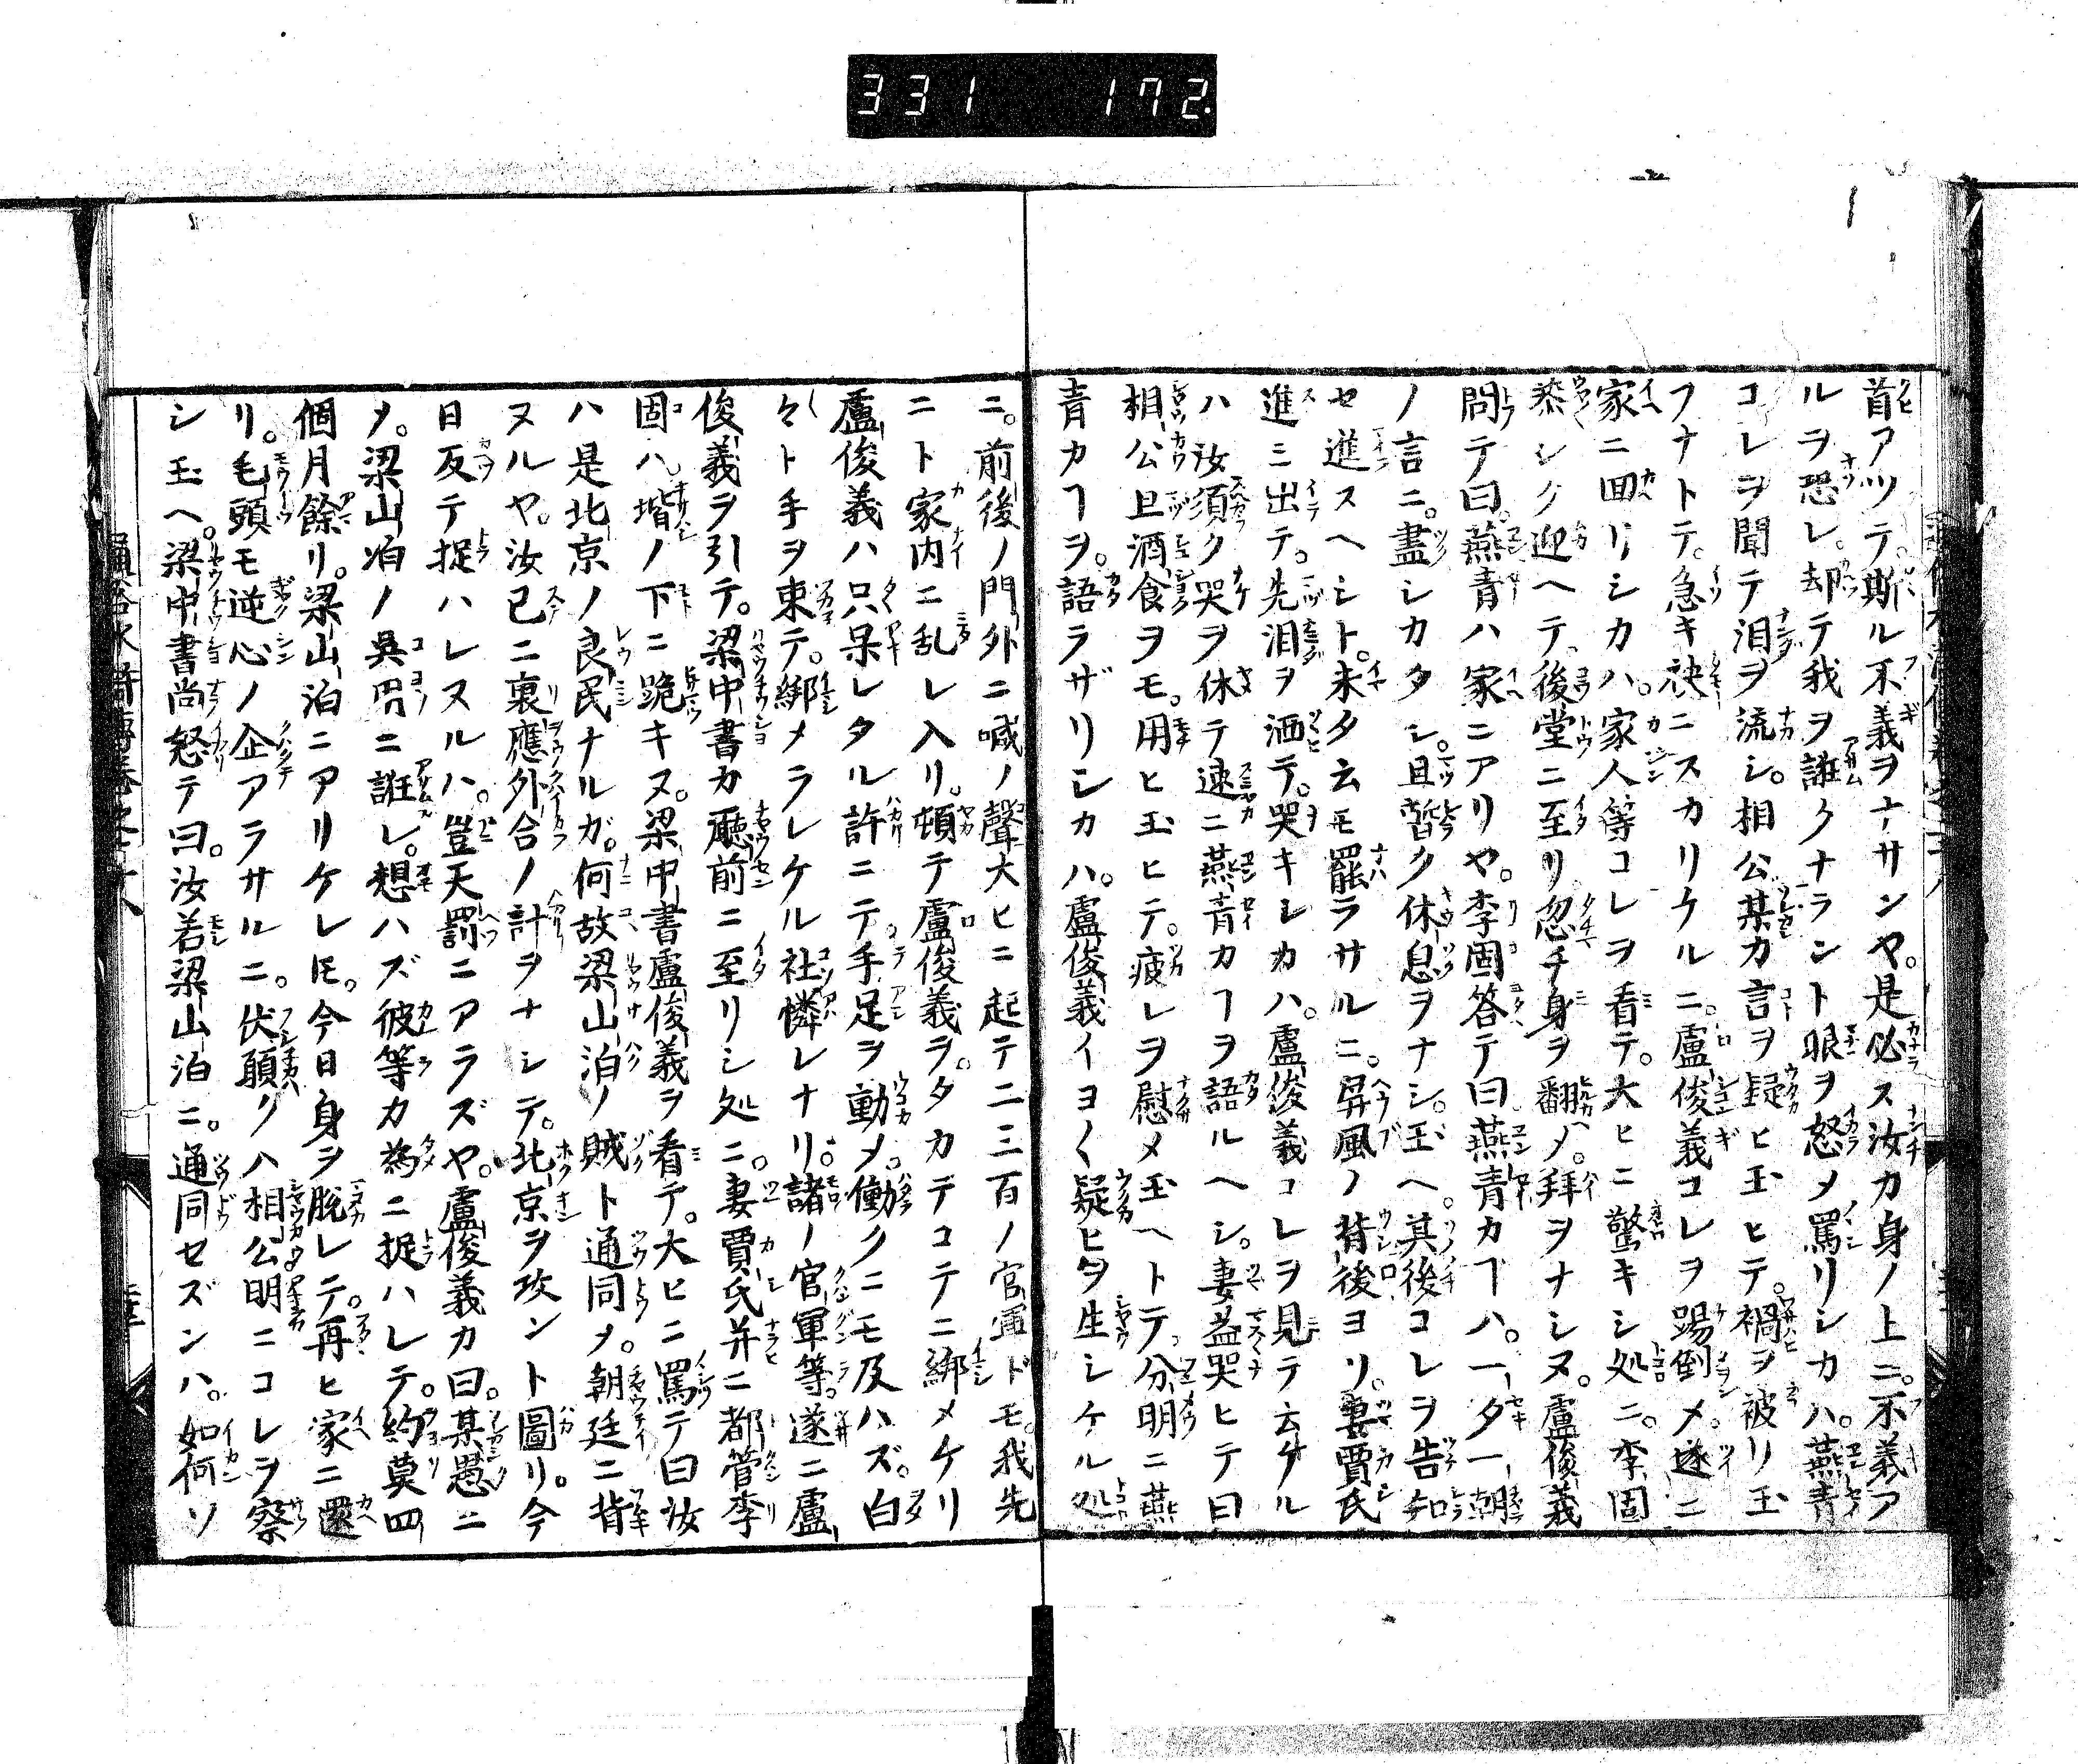 331 172.
首アツテ。斯ル不義ヲナサンヤ。是必ス汝カ身ノ上ニ。不義ア
ルヲ恐レ。却テ我ヲ誑クナラント眼ヲ怒メ罵リシカハ。燕青
コレヲ聞テ泪ヲ流シ。相公某カ言ヲ疑ヒ玉ヒテ。禍ヲ被リ玉
フナトテ。急キ袂ニスカリケルニ。盧俊義コレヲ踢倒メ。遂ニ
家ニ回リシカハ。家人等コレヲ看テ。大ヒニ驚キシ処ニ。李固
恭シク迎ヘテ。後堂ニ至リ忽チ身ヲ翻メ。拜ヲナシヌ。盧俊義
問テ曰。燕青ハ家ニアリヤ。李固答テ曰燕青カヿハ。一夕一朝
ノ言ニ。盡シカタシ。且暫ク休息ヲナシ。玉ヘ。其後コレヲ告知
セ進スヘシト。未タ云モ罷ラサルニ。屏風ノ背後ヨリ。妻賈氏
進ミ出テ。先泪ヲ洒テ。哭キシカハ。盧俊義コレヲ見テ云ケル
ハ汝須ク哭ヲ休テ速ニ燕青カヿヲ語ルヘシ。妻益哭ヒテ曰
相公且酒食ヲモ。用ヒ玉ヒテ。疲レヲ慰メ玉ヘトテ分明ニ燕
青カヿヲ。語ラザリシカハ。盧俊義イヨ〱疑ヒヲ生シケル処
ニ。前後ノ門外ニ喊ノ聲大ヒニ起テ二三百ノ官軍ドモ。我先
ニト家内ニ乱レ入リ。頓テ盧俊義ヲ。タカテコテニ綁メケリ
盧俊義ハ只呆レタル許ニテ手足ヲ動メ。働クニモ及ハズ。白
々ト手ヲ束テ。綁メラレケル社憐レナリ。諸ノ官軍等。遂ニ盧
俊義ヲ引テ。梁中書カ廳前ニ至リシ処ニ。妻賈氏并ニ都管李
固ハ堦ノ下ニ跪キヌ。梁中書盧俊義ヲ看テ。大ヒニ罵テ曰汝
ハ是北京ノ良民ナルガ。何故梁山泊ノ賊ト通同メ。朝廷ニ背
ヌルヤ。汝已ニ裏應外合ノ計ヲナシテ。北京ヲ攻ント圖リ。今
日反テ捉ハレヌルハ。豈天罰ニアラズヤ。盧俊義カ曰。某愚ニ
メ。梁山泊ノ吳用ニ誑レ。想ハズ彼等カ為ニ捉ハレテ。約莫四
個月餘リ。梁山泊ニアリケレ𪜈。今日身ヲ脱レテ。再ヒ家ニ還
リ。毛頭モ逆心ノ企アラサルニ。伏願クハ相公明ニコレヲ察
シ玉ヘ。梁中書尚怒テ曰。汝若梁山泊ニ。通同セズンハ。如何ソ